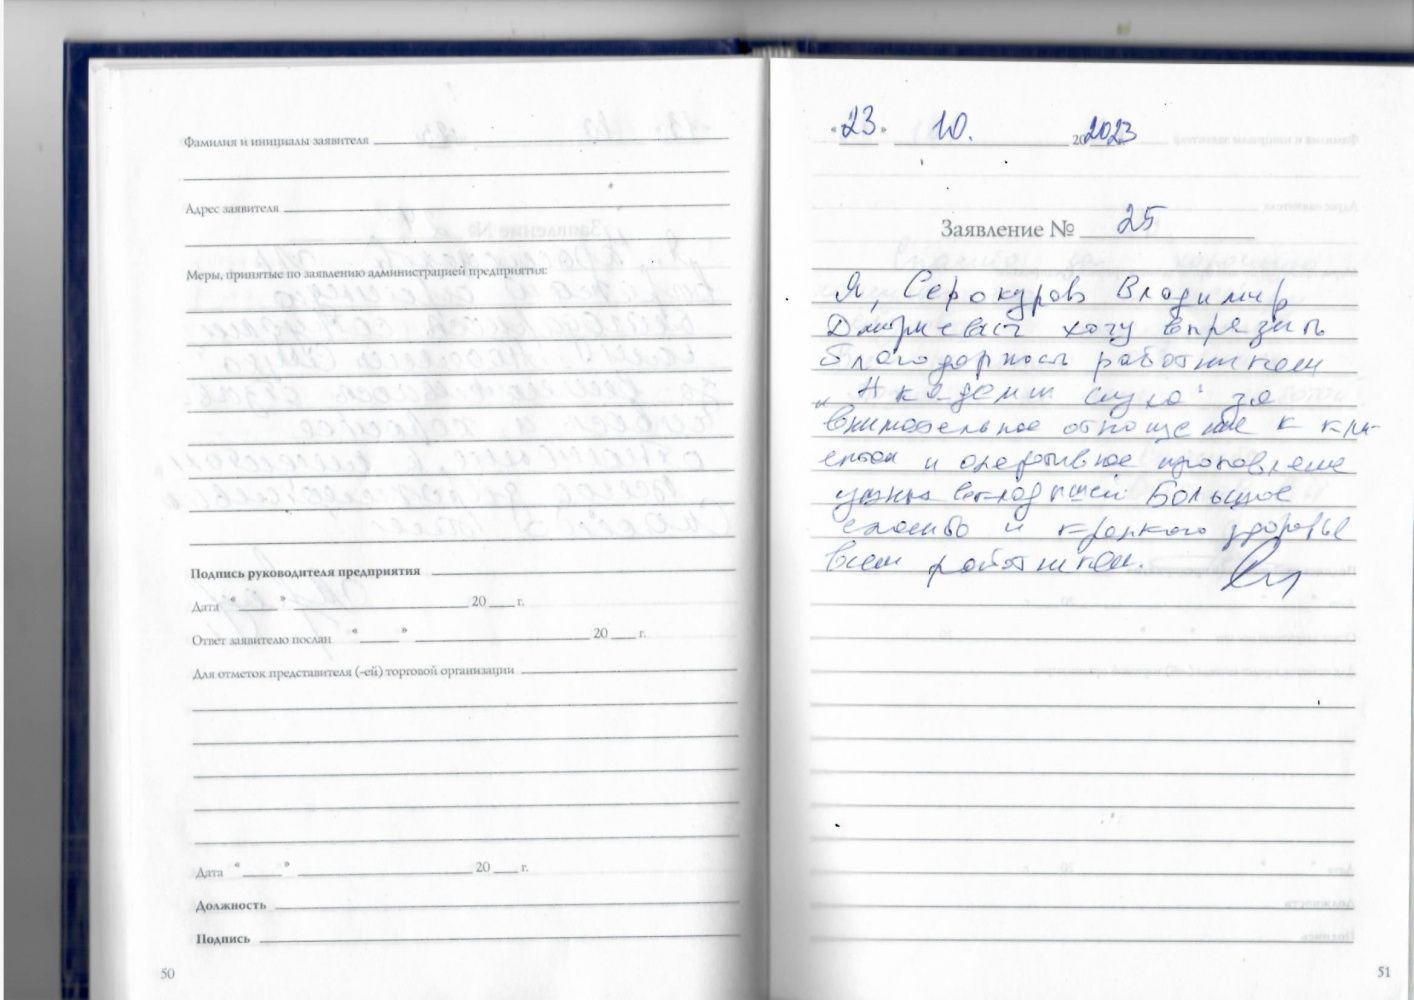 Фамилия и инициалы заявителя
Адрес заявителя
Меры, принятые по заявлению администрацией предприятия:
Подпись руководителя предприятия
Дата « » 20 г.
Ответ заявителю послан « » 20 г.
Для отметок представителя (-ей) торговой организации
Дата « » 20 г.
Должность
Подпись
50
«23» 10. 20 2023
Заявление № 25
Я, Серокуров Владимир
Дмитриевич хочу выразить
благодарность работникам
"Академии слуха" за
внимательное отношение к кли-
ентам и оперативное
ушных вкладышей Большое
спасибо и крепкого здоровья
всем работникам.
51